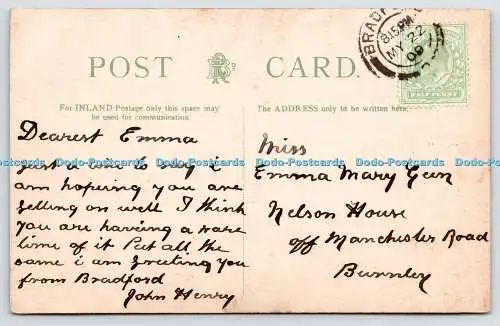 POST CARD.
For INLAND Postage only this space may
be used for communication
The ADDRESS only to be written here.
BRADFORD
8.15PM
MY 22
09
HALFPENNY
Dearest Emma
just a line to say i
am hopering you are
gelling on well I think
you are having a rare
time of it Pet all the
same i am greeting you
from Bradford
John Henry
Miss
Emma Mary Geen
Nelson House
off Manchester Road
Burnley
Dodo-Postcards Dodo-Postcards Dodo-Postcards Dodo-Postcards Dodo-Postcards Dodo-Postcards